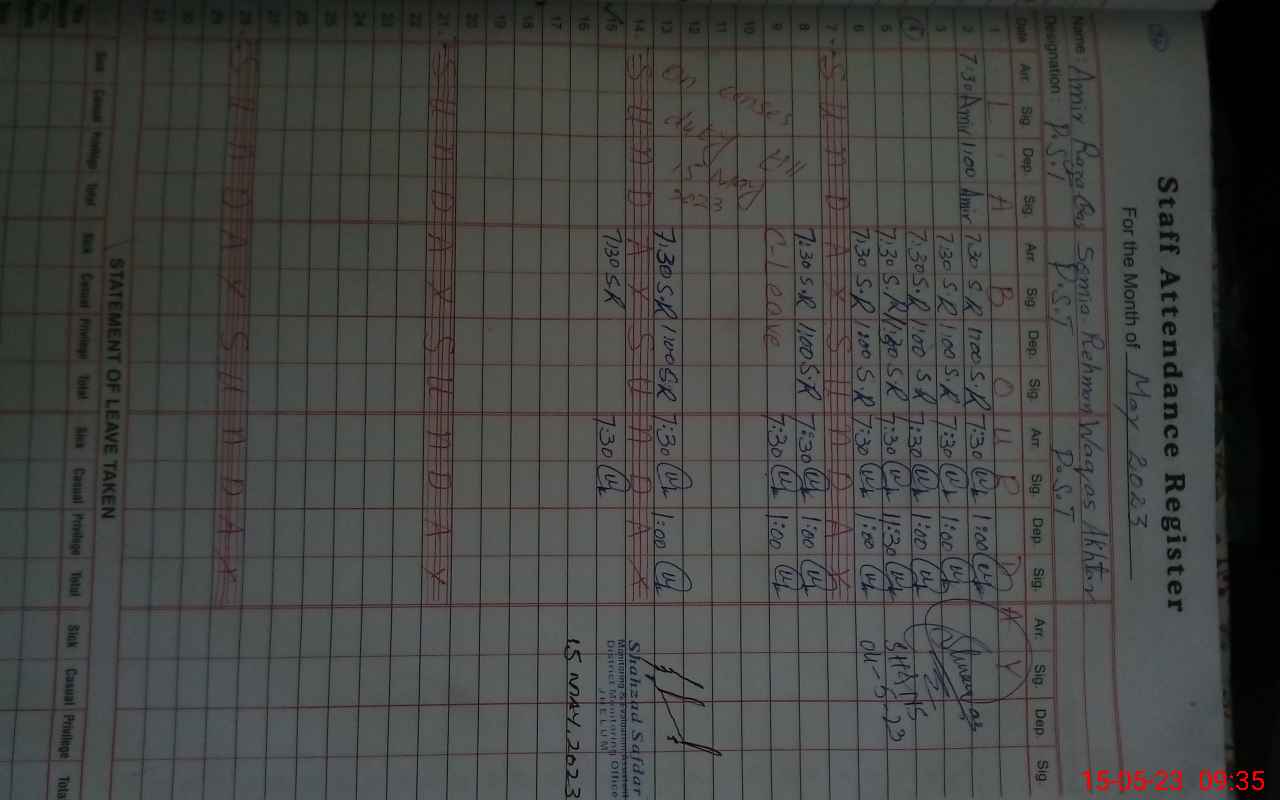 Staff Attendance Register
For the Month of May 2023
Name : Amir Raza Samia Rehman Waqas Akhtar
Designation : P.S.T P.S.T P.S.T
Date Arr. Sig. Dep. Sig. Arr. Sig. Dep. Sig. Arr. Sig. Dep Sig. Arr. Sig Dep. Sig.
1 L A B O U R D A Y
2 7:30 Amir 1:00 Amir 7:30 S.R 1:00 S.R 7:30 1:00
3 7:30 S.R 1:00 S.R 7:30 1:00
4 7:30 S.R 1:00 S.R 7:30 1:00
5 7:30 S.R 11:30 S.R 7:30 11:30
6 7:30 S.R 1:00 S.R 7:30 1:00
04-5-23
7 S U N D A Y S U N D A Y
8 7:30 S.R 1:00 S.R 7:30 1:00
9 C-Leave 7:30 1:00
10
11
12
13 7:30 S.R 1:00 S.R 7:30 1:00
on duty
14 S U N D A Y S U N D A Y
15 7:30 S.R 7:30
Shahzad Safdar
Monitoring & Evaluation Assistant
District Monitoring Office
JHELUM
15 MAY, 2023
16
17
18
19
20
21 S U N D A Y S U N D A Y
22
23
24
25
26
27
28 S U N D A Y S U N D A Y
29
30
31
STATEMENT OF LEAVE TAKEN
Sick Casual Privilege Total Sick Casual Privilege Total Sick Casual Privilege Total Sick Casual Privilege Total
15-05-23 09:35